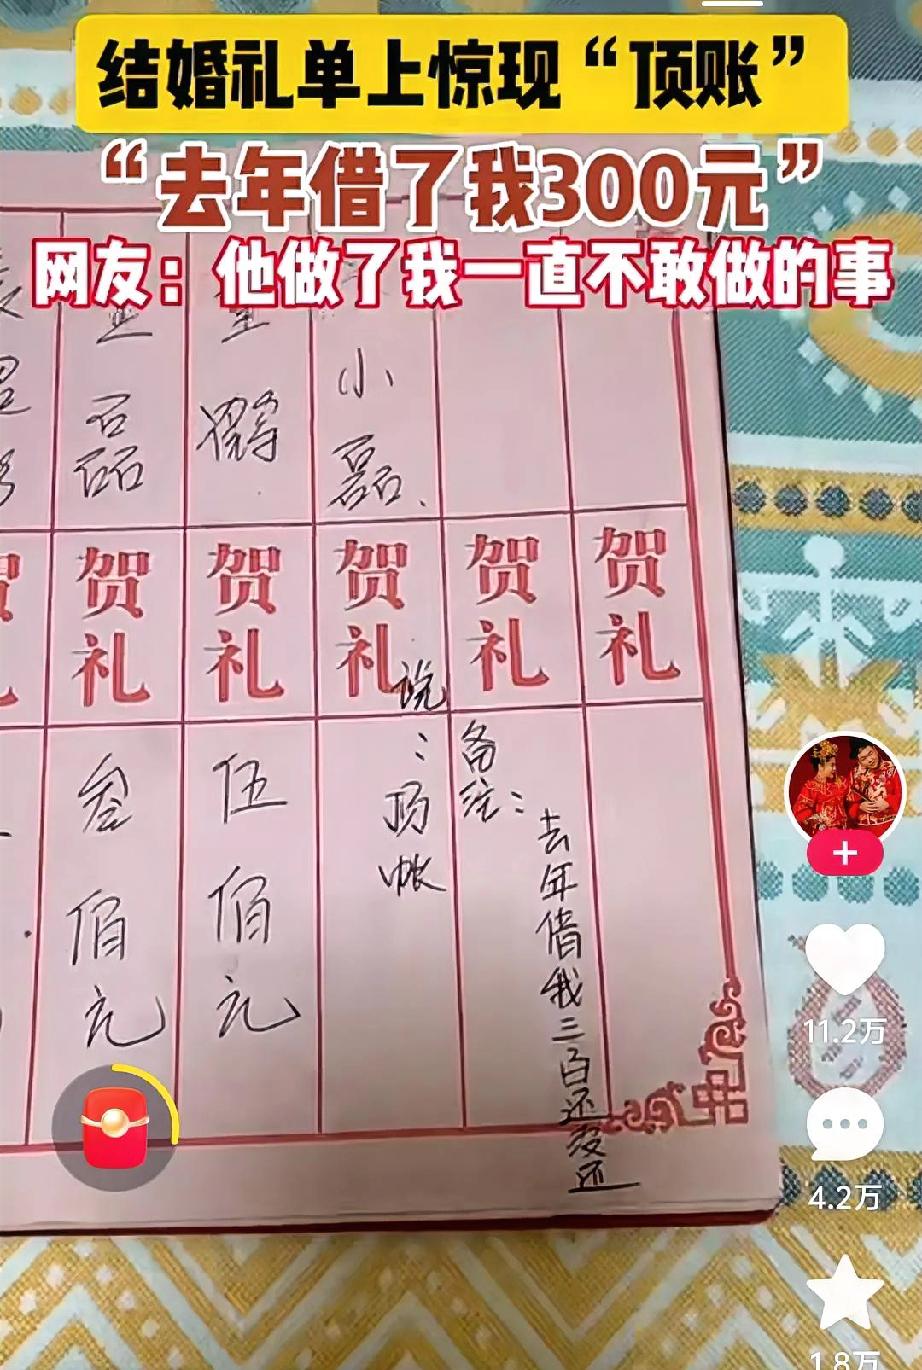 结婚礼单上惊现“顶账”
“去年借了我300元”
网友：他做了我一直不敢做的事
磊
小磊
贺礼
贺礼
贺礼
贺礼
贺礼
叁佰元
伍佰元
说：顶帐
备注：
去年借我三百还没还
11.2万
4.2万
1.8万